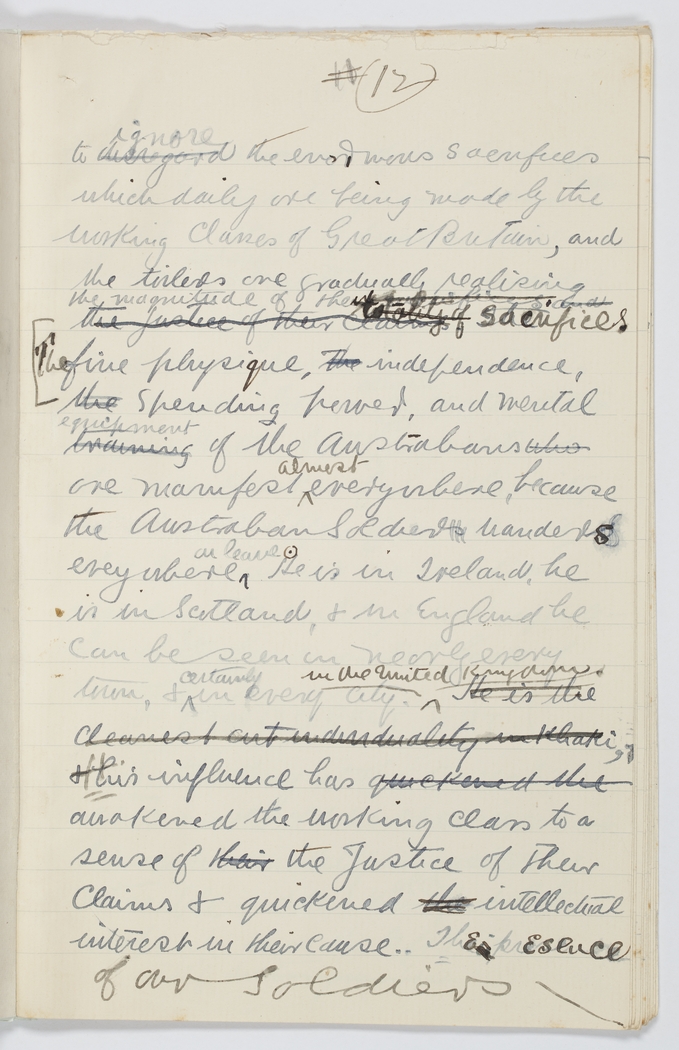 (12)
ignore
to disregard the enormous sacrifices
which daily are being made by the
working classes of Great Britain, and
the toilers are gradually realising
the magnitude of their
the Justice of their Claims totality of sacrifices.
The fine physique, the independence,
the spending power, and mental
equipment
training of the Australians who
almost
are manifest everywhere, because
the Australian Soldier wanders
on leave
everywhere. He is in Ireland, he
is in Scotland, & in England he
can be seen in nearly every
certainly in the United Kingdom.
town, & in every city. He is the
clearest cut individuality in Khaki,
& his influence has quickened the
awakened the working class to a
sense of their the Justice of their
Claims & quickened the intellectual
interest in their cause.. The presence
of our Soldiers